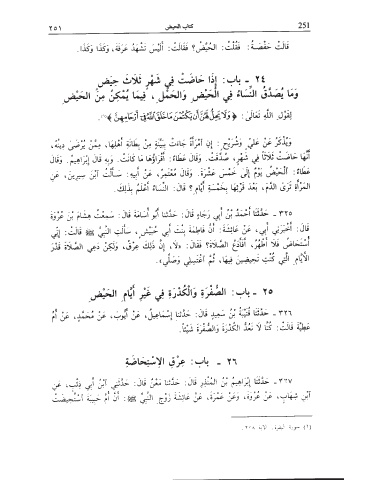 251 كتاب الحيض ٢٥١
قَالَتْ حَفْصَةُ: فَقُلْتُ: الحُيَّضُ؟ فَقَالَتْ: أَلَيْسَ تَشْهَدُ عَرَفَةَ، وَكَذَا وَكَذَا.
٢٤ ـ باب: إِذَا حَاضَتْ فِي شَهْرٍ ثَلَاثَ حِيَضٍ
وَمَا يُصَدَّقُ النِّسَاءُ فِي الْحَيْضِ وَالْحَمْلِ، فِيمَا يُمْكِنُ مِنَ الْحَيْضِ
لِقَوْلِ اللَّهِ تَعَالَى: ﴿وَلَا يَحِلُّ لَهُنَّ أَن يَكْتُمْنَ مَا خَلَقَ اللَّهُ فِي أَرْحَامِهِنَّ﴾(١).
وَيُذْكَرُ عَنْ عَلِيٍّ وَشُرَيْحٍ: إِنِ امْرَأَةٌ جَاءَتْ بِبَيِّنَةٍ مِنْ بِطَانَةِ أَهْلِهَا، مِمَّنْ يُرْضَى دِينُهُ،
أَنَّهَا حَاضَتْ ثَلَاثًا فِي شَهْرٍ، صُدِّقَتْ. وَقَالَ عَطَاءٌ: أَقْرَاؤُهَا مَا كَانَتْ. وَبِهِ قَالَ إِبْرَاهِيمُ. وَقَالَ
عَطَاءٌ: الْحَيْضُ يَوْمٌ إِلَى خَمْسَ عَشْرَةَ. وَقَالَ مُعْتَمِرٌ، عَنْ أَبِيهِ: سَأَلْتُ ابْنَ سِيرِينَ، عَنِ
المَرْأَةِ تَرَى الدَّمَ، بَعْدَ قُرْئِهَا بِخَمْسَةِ أَيَّامٍ؟ قَالَ: النِّسَاءُ أَعْلَمُ بِذَلِكَ.
٣٢٥ ـ حَدَّثَنَا أَحْمَدُ بْنُ أَبِي رَجَاءٍ قَالَ: حَدَّثَنَا أَبُو أُسَامَةَ قَالَ: سَمِعْتُ هِشَامَ بْنَ عُرْوَةَ
قَالَ: أَخْبَرَنِي أَبِي، عَنْ عَائِشَةَ: أَنَّ فَاطِمَةَ بِنْتَ أَبِي حُبَيْشٍ، سَأَلَتِ النَّبِيَّ ﷺ قَالَتْ: إِنِّي
أُسْتَحَاضُ فَلَا أَطْهُرُ، أَفَأَدَعُ الصَّلَاةَ؟ فَقَالَ: «لَا، إِنَّ ذَلِكَ عِرْقٌ، وَلَكِنْ دَعِي الصَّلَاةَ قَدْرَ
الْأَيَّامِ الَّتِي كُنْتِ تَحِيضِينَ فِيهَا، ثُمَّ اغْتَسِلِي وَصَلِّي».
٢٥ ـ باب: الصُّفْرَةِ وَالْكُدْرَةِ فِي غَيْرِ أَيَّامِ الْحَيْضِ
٣٢٦ ـ حَدَّثَنَا قُتَيْبَةُ بْنُ سَعِيدٍ قَالَ: حَدَّثَنَا إِسْمَاعِيلُ، عَنْ أَيُّوبَ، عَنْ مُحَمَّدٍ، عَنْ أُمِّ
عَطِيَّةَ قَالَتْ: كُنَّا لَا نَعُدُّ الْكُدْرَةَ وَالصُّفْرَةَ شَيْئًا.
٢٦ ـ باب: عِرْقِ الِاسْتِحَاضَةِ
٣٢٧ ـ حَدَّثَنَا إِبْرَاهِيمُ بْنُ الْمُنْذِرِ قَالَ: حَدَّثَنَا مَعْنٌ قَالَ: حَدَّثَنِي ابْنُ أَبِي ذِئْبٍ، عَنِ
ابْنِ شِهَابٍ، عَنْ عُرْوَةَ، وَعَنْ عَمْرَةَ، عَنْ عَائِشَةَ زَوْجِ النَّبِيِّ ﷺ: أَنَّ أُمَّ حَبِيبَةَ اسْتُحِيضَتْ
(١) سورة البقرة، الآية ٢٢٨.